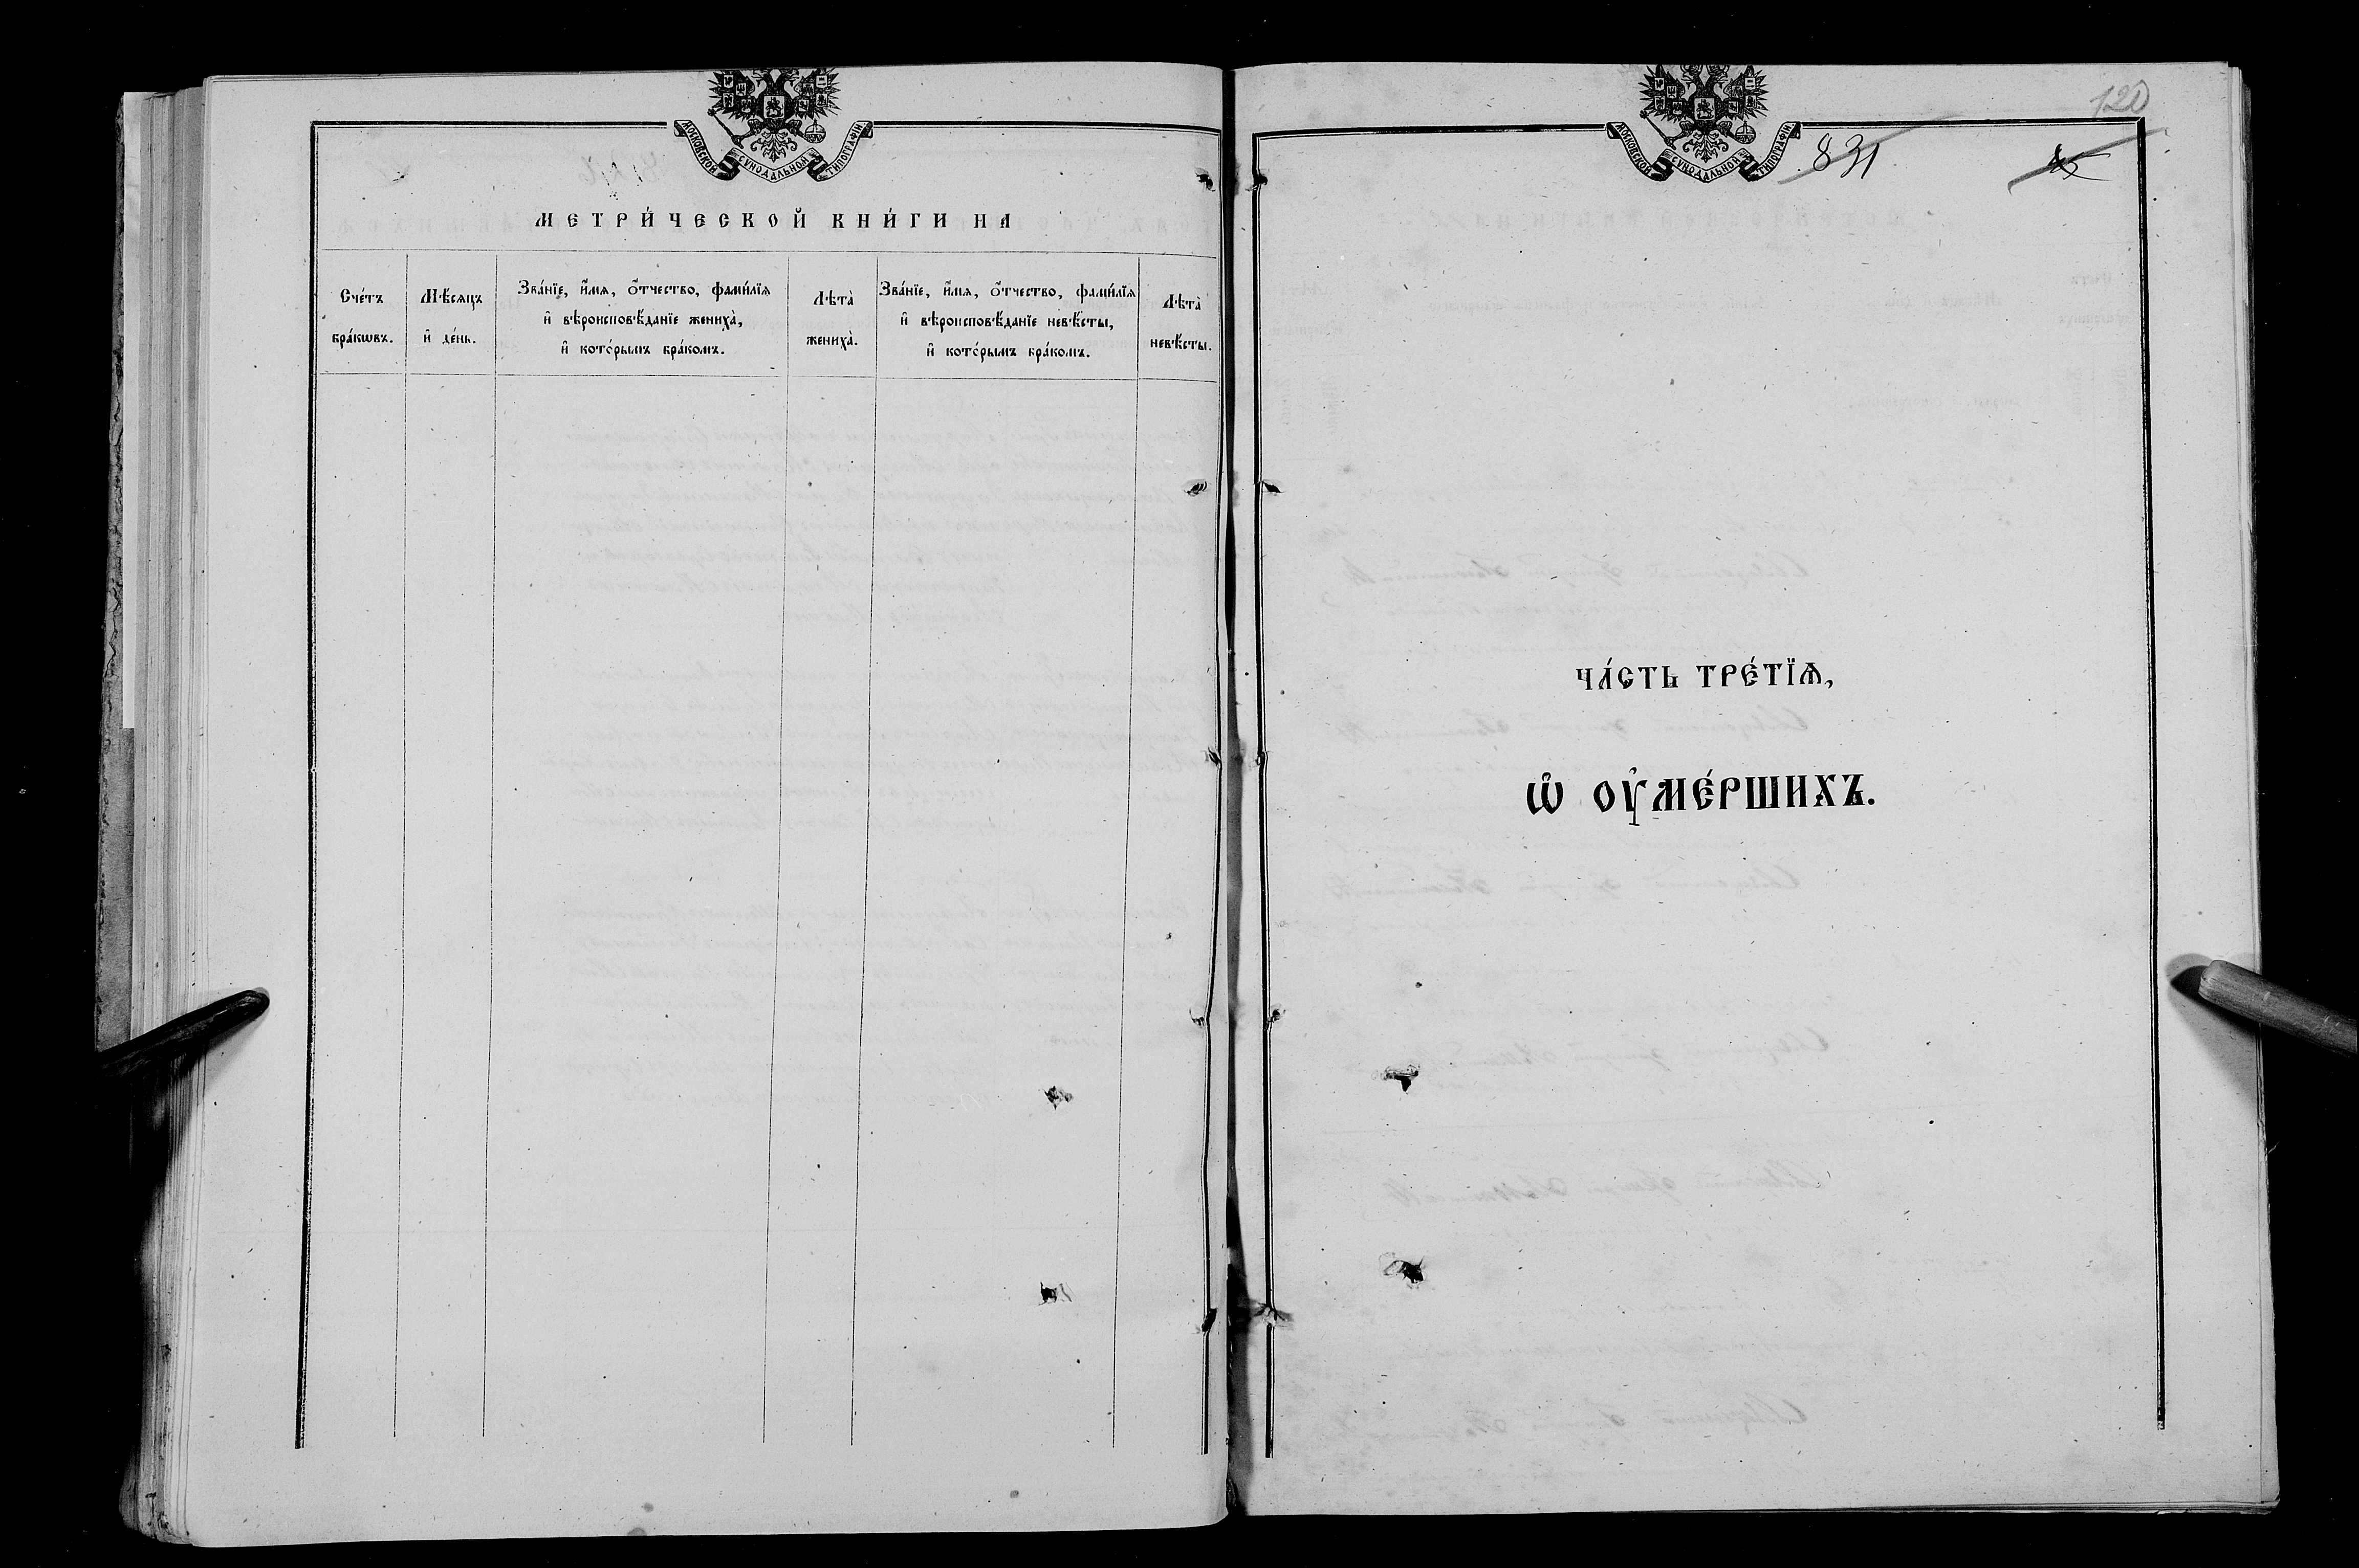 МОСКОВСКОЙ СѴНОДАЛЬНОЙ ТИПОГРАФІИ
МЕТРИ́ЧЕСКОЙ КНИ́ГИ НА
Сче́тъ бра́кѡвъ.
Мѣ́сяцъ и҆ де́нь.
Зва́нїе, и҆́мя, ѻ҆́тчество, фами́лїя
и҆ вѣроисповѣ́данїе жениха̀,
и҆ кото́рымъ бра́комъ.
Лѣта̀ жениха̀.
Зва́нїе, и҆́мя, ѻ҆́тчество, фами́лїя
и҆ вѣроисповѣ́данїе невѣ́сты,
и҆ кото́рымъ бра́комъ.
Лѣта̀ невѣ́сты.
120
МОСКОВСКОЙ СѴНОДАЛЬНОЙ ТИПОГРАФІИ
831
ЧА́СТЬ ТРЕ́ТЇѦ,
Ѡ҆ ОУ҆МЕ́РШИХЪ.